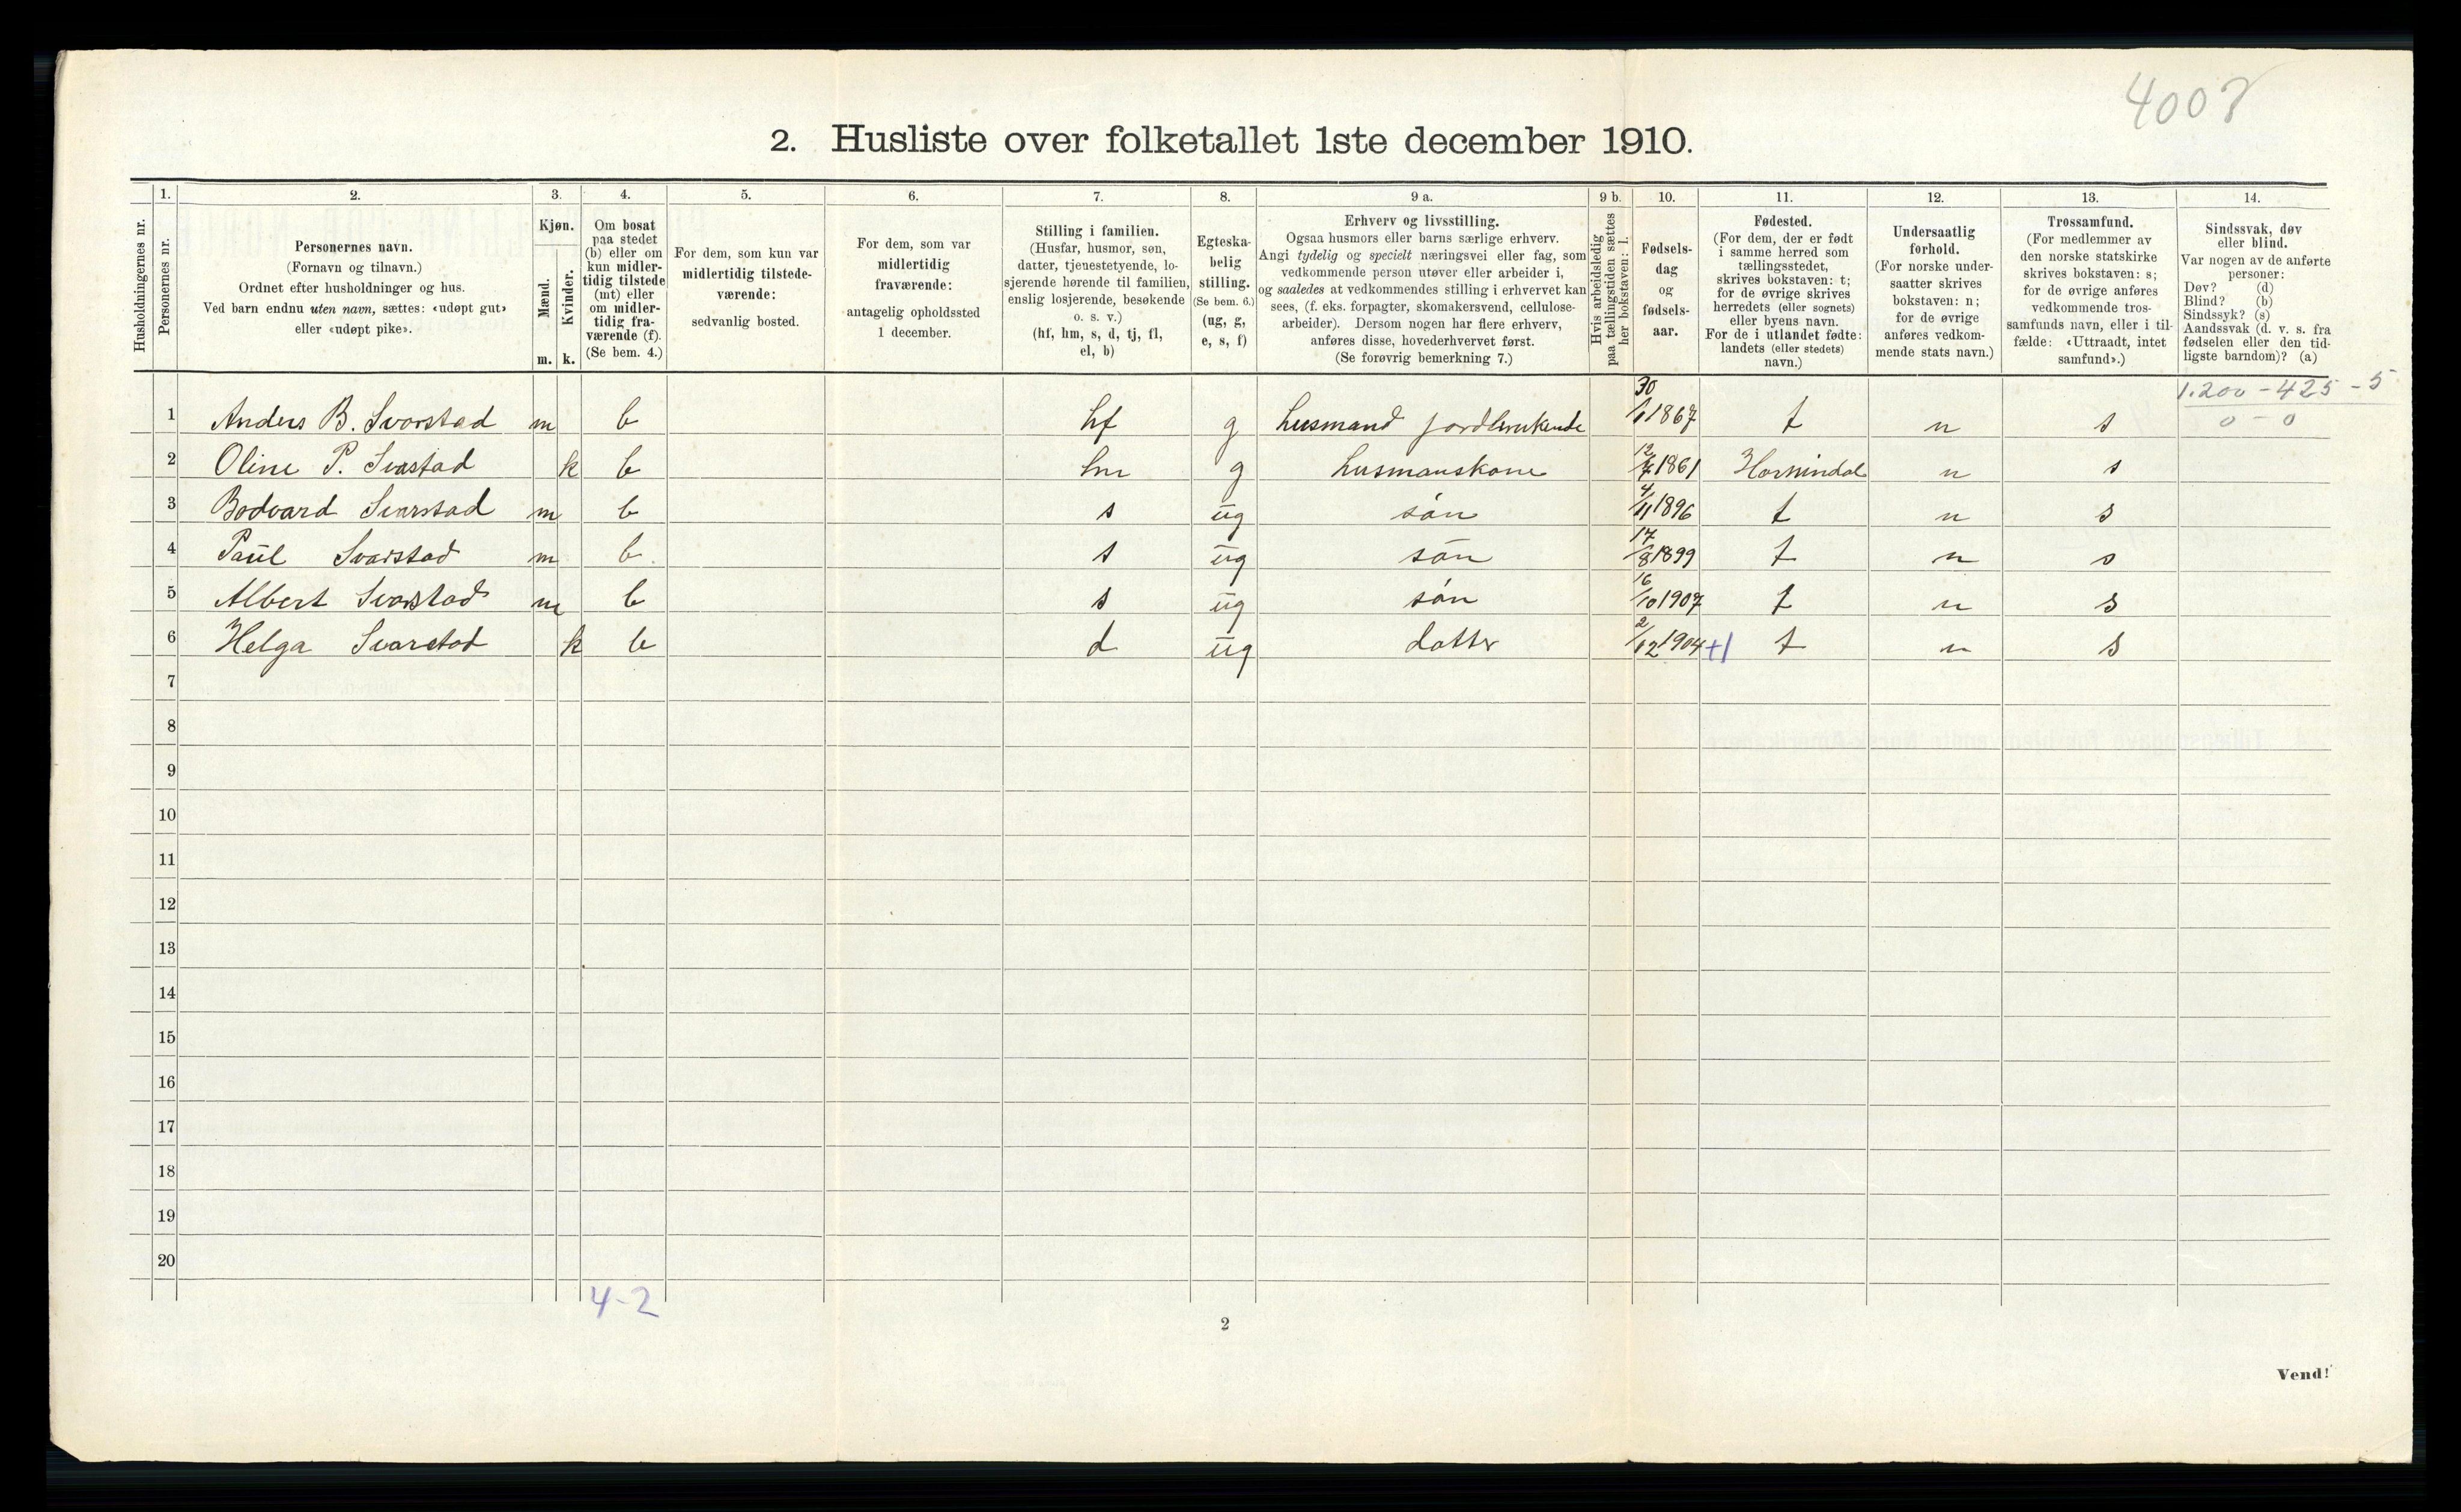 4007
2. Husliste over folketallet 1ste december 1910.
Husholdningernes nr.
1.
Personernes nr.
2.
Personernes navn.
(Fornavn og tilnavn.)
Ordnet efter husholdninger og hus.
Ved barn endnu uten navn, sættes: «udøpt gut»
eller «udøpt pike».
3.
Kjøn.
Mænd.
Kvinder.
m. k.
4.
Om bosat
paa stedet
(b) eller om
kun midler-
tidig tilstede
(mt) eller
om midler-
tidig fra-
værende (f).
(Se bem. 4.)
5.
For dem, som kun var
midlertidig tilstede-
værende:
sedvanlig bosted.
6.
For dem, som var
midlertidig
fraværende:
antagelig opholdssted
1 december.
7.
Stilling i familien.
(Husfar, husmor, søn,
datter, tjenestetyende, lo-
sjerende hørende til familien,
enslig losjerende, besøkende
o. s. v.)
(hf, hm, s, d, tj, fl,
el, b)
8.
Egteska-
belig
stilling.
(Se bem. 6.)
(ug, g,
e, s, f)
9 a.
Erhverv og livsstilling.
Ogsaa husmors eller barns særlige erhverv.
Angi tydelig og specielt næringsvei eller fag, som
vedkommende person utøver eller arbeider i,
og saaledes at vedkommendes stilling i erhvervet kan
sees, (f. eks. forpagter, skomakersvend, cellulose-
arbeider). Dersom nogen har flere erhverv,
anføres disse, hovederhvervet først.
(Se forøvrig bemerkning 7.)
9 b.
Hvis arbeidsledig
paa tællingstiden sættes
her bokstaven: l.
10.
Fødsels-
dag
og
fødsels-
aar.
11.
Fødested.
(For dem, der er født
i samme herred som
tællingsstedet,
skrives bokstaven: t;
for de øvrige skrives
herredets (eller sognets)
eller byens navn.
For de i utlandet fødte:
landets (eller stedets)
navn.)
12.
Undersaatlig
forhold.
(For norske under-
saatter skrives
bokstaven: n;
for de øvrige
anføres vedkom-
mende stats navn.)
13.
Trossamfund.
(For medlemmer av
den norske statskirke
skrives bokstaven: s;
for de øvrige anføres
vedkommende tros-
samfunds navn, eller i til-
fælde: «Uttraadt, intet
samfund».)
14.
Sindssvak, døv
eller blind.
Var nogen av de anførte
personer:
Døv? (d)
Blind? (b)
Sindssyk? (s)
Aandssvak (d. v. s. fra
fødselen eller den tid-
ligste barndom)? (a)
1.200 - 425 - 5
0 - 0
1 Anders B. Svorstad m b hf g husmand jordbrukende 30/1 1867 t n s
2 Oline P. Svastad k b hm g husmanskone 12/7 1861 Hornindal n s
3 Bodvard Svarstad m b s ug søn 4/11 1896 t n s
4 Paul Svarstad m b. s ug søn 17/8 1899 t n s
5 Albert Svorstad m b s ug søn 16/10 1907 t n s
6 Helga Svarstad k b d ug datter 2/12 1904 +1 t n s
7
8
9
10
11
12
13
14
15
16
17
18
19
20
4-2
2
Vend!